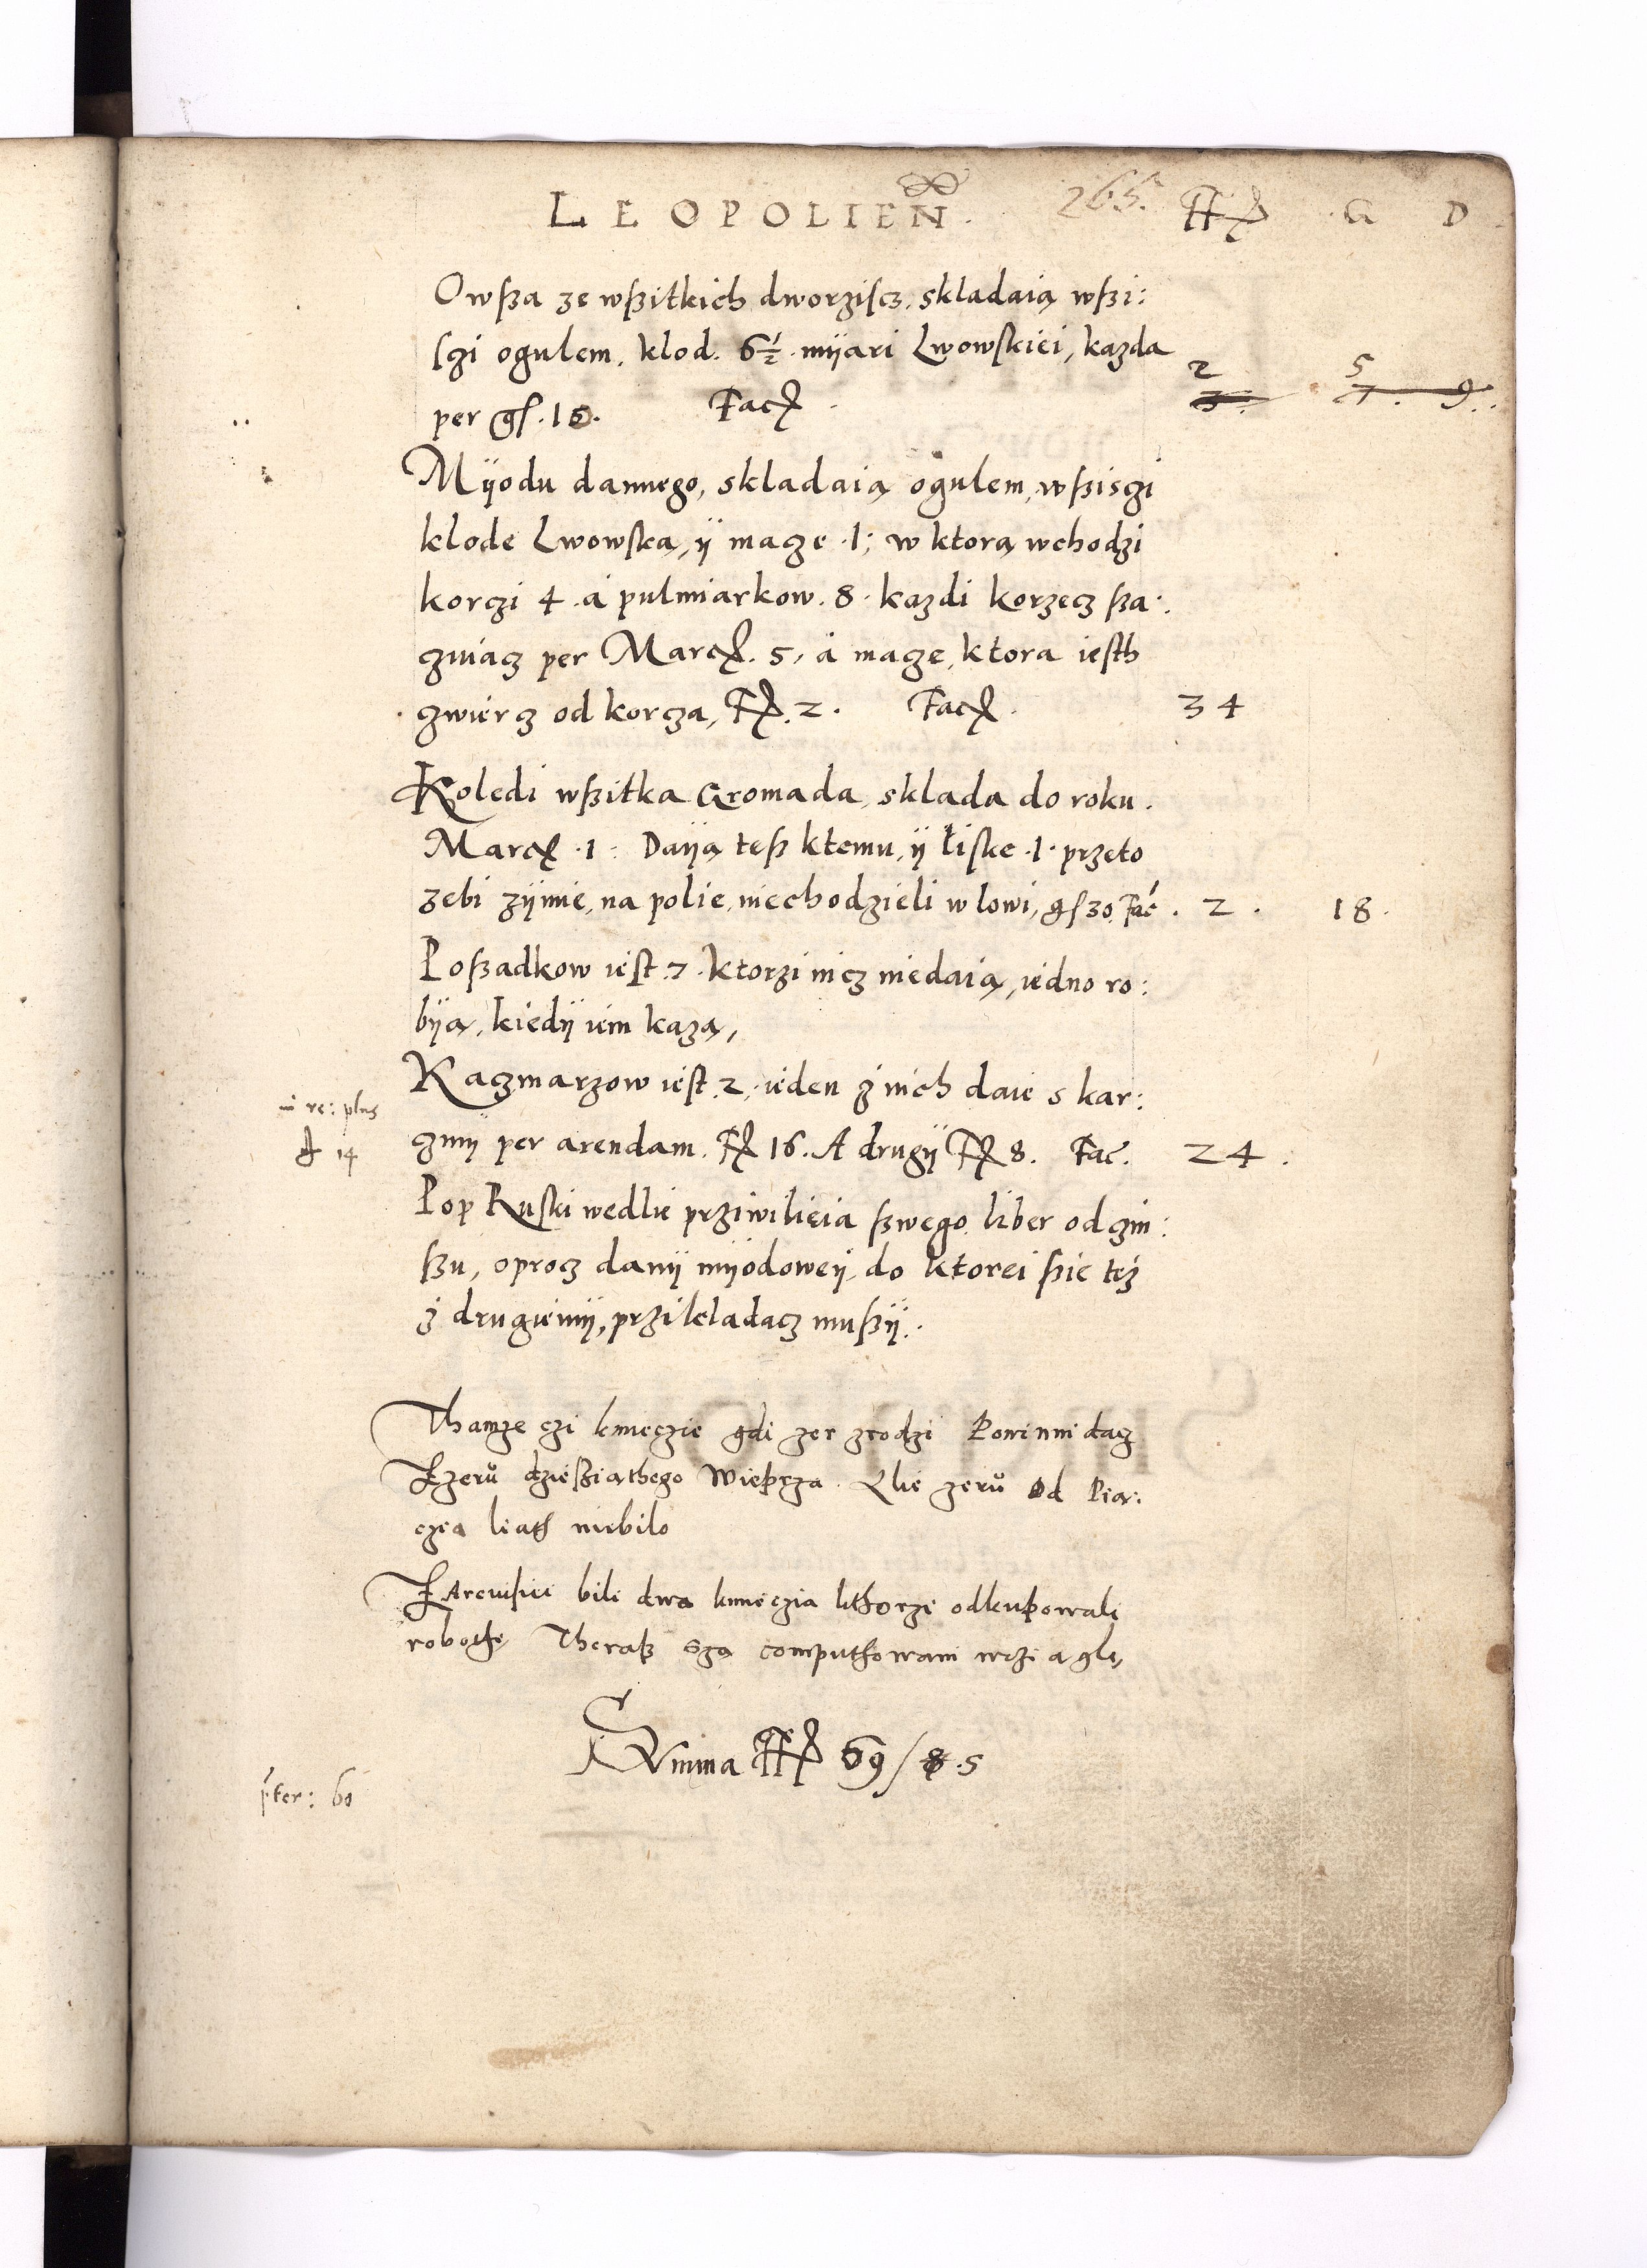 LEOPOLIEÑ. 265. G D
Owßa ze wßitkich dworziscz, skladaią wßi:
sczi ogulem, klod. 6½ mÿari Lwowskiei, kazda
per gs. 10. Fac 2 3. 5 7. 9.
Mÿodu dannego, skladaią ogulem, wßisczi
klode Lwowską, ÿ macze .1; w ktorą wchodzi
korczi 4 .a pulmiarkow. 8. kazdi korzecz ßa:
czuiącz per Marc. 5, a macze, ktora iesth
czwiercz od korcza, 2. Fac. 34
Koledi wßitka Gromada, sklada do roku.
Marc .1: Daÿą teß ktemu, ÿ liske .1. przeto
zebi zÿmie, na polie, niechodzieli w lowi, gs 30. Fac. 2. 18.
Poßadkow iest .7. ktorzi nicz niedaią, iedno ro:
bÿą, kiedÿ iem kazą,
Kaczmarzow iest .2. ieden z nich daie s kar:
in re: plus
czmÿ per arendam. 16. A drugÿ 8. Fac. 24.
14
Pop Ruski wedlie prziwilieia ßwego, liber od czin:
ßu, oprocz danÿ mÿodoweÿ, do ktorei ßie też
z drugiemÿ, przikladacz mußÿ.
Thamze czi kmieczie gdi zer zrodzi Powinni dacz
Zzerů dzießiąthego Wieprza. Alie zerů od Pia:
czia liath niebilo
bili dwa kmieczia kthorzi odkupowali
robothę Theraß szą computhowani
Summa 69/ 8 .5
pter: 60